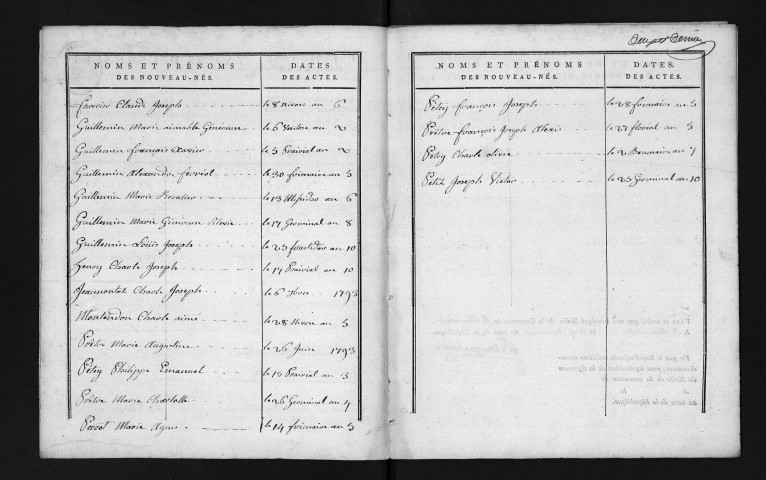 NOMS ET PRÉNOMS DES NOUVEAU-NÉS. DATES DES ACTES.
Claude Joseph le 8 Nivose an 6
Guillemin Marie aimable Genevieve le 6 Ventose an 2
Guillemin François Xavier le 3 Prairial an 2
Guillemin Alexandre ferréol le 30 frimaire an 3
Guillemin Marie Rosalie le 13 Messidor an 6
Guillemin Marie Genevieve le 17 Germinal an 8
Guillemin Loüis Joseph le 23 fructidor an 10
henry Charle Joseph le 14 Prairial an 10
Jeannontot Charle Joseph le 6 1793
Montandon Charle aimé le 28 Nivose an 3
Prêtre Marie Augustine le 26 Juin 1793
Pétey Philippe Emanuel le 15 Prairial an 3
Prêtre Marie Charlotte le 26 Germinal an 4
Perrot Marie Agnes le 14 frimaire an 5
NOMS ET PRÉNOMS DES NOUVEAU-NÉS. DATES DES ACTES.
Pétey françois Joseph le 28 frimaire an 5
Prêtre françois Joseph Alexis le 27 floréal an 5
Pétey Charle olivie le 2 Brumaire an 7
Petit Joseph Victor le 23 Germinal an 10